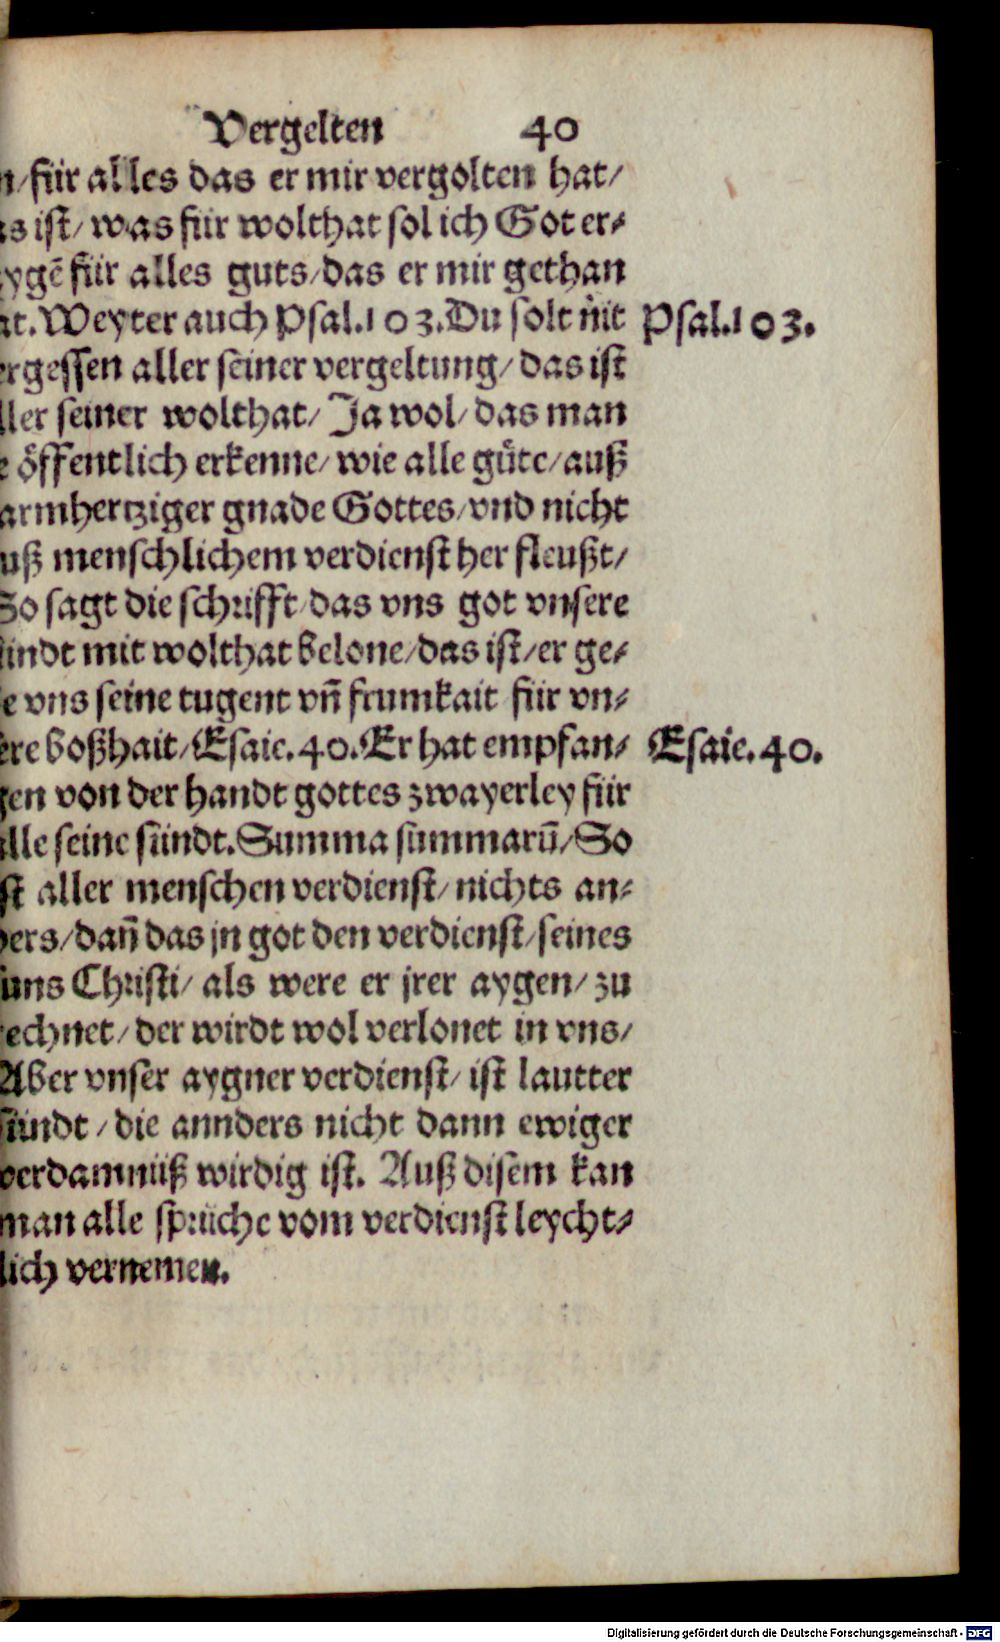 Vergelten 40
n/ für alles das er mir vergolten hat/
as ist/ was für wolthat sol ich Got er⸗
zygē für alles guts/ das er mir gethan
at. Weyter auch Psal.103. Du solt nit
Psal.103.
ergessen aller seiner vergeltung/ das ist
ller seiner wolthat/ Ja wol/ das man
e öffentlich erkenne/ wie alle güte/ auß
armhertziger gnade Gottes/ vnd nicht
uß menschlichem verdienst her fleußt/
So sagt die schrifft/ das vns got vnsere
sindt mit wolthat belone/ das ist/ er ge⸗
e vns seine tugent vñ frumkait für vn⸗
ere boßhait/ Esaie.40. Er hat empfan⸗
Esaie.40.
gen von der handt gottes zwayerley für
alle seine sündt. Summa summarū/ So
st aller menschen verdienst/ nichts an⸗
ders/ dañ das jn got den verdienst/ seines
suns Christi/ als were er jrer aygen/ zu
rechnet/ der wirdt wol verlonet in vns/
Aber vnser aygner verdienst/ ist lautter
sündt/ die annders nicht dann ewiger
verdamnüß wirdig ist. Auß disem kan
man alle sprüche vom verdienst leycht⸗
lich vernemen.
Digitalisierung gefördert durch die Deutsche Forschungsgemeinschaft - DFG